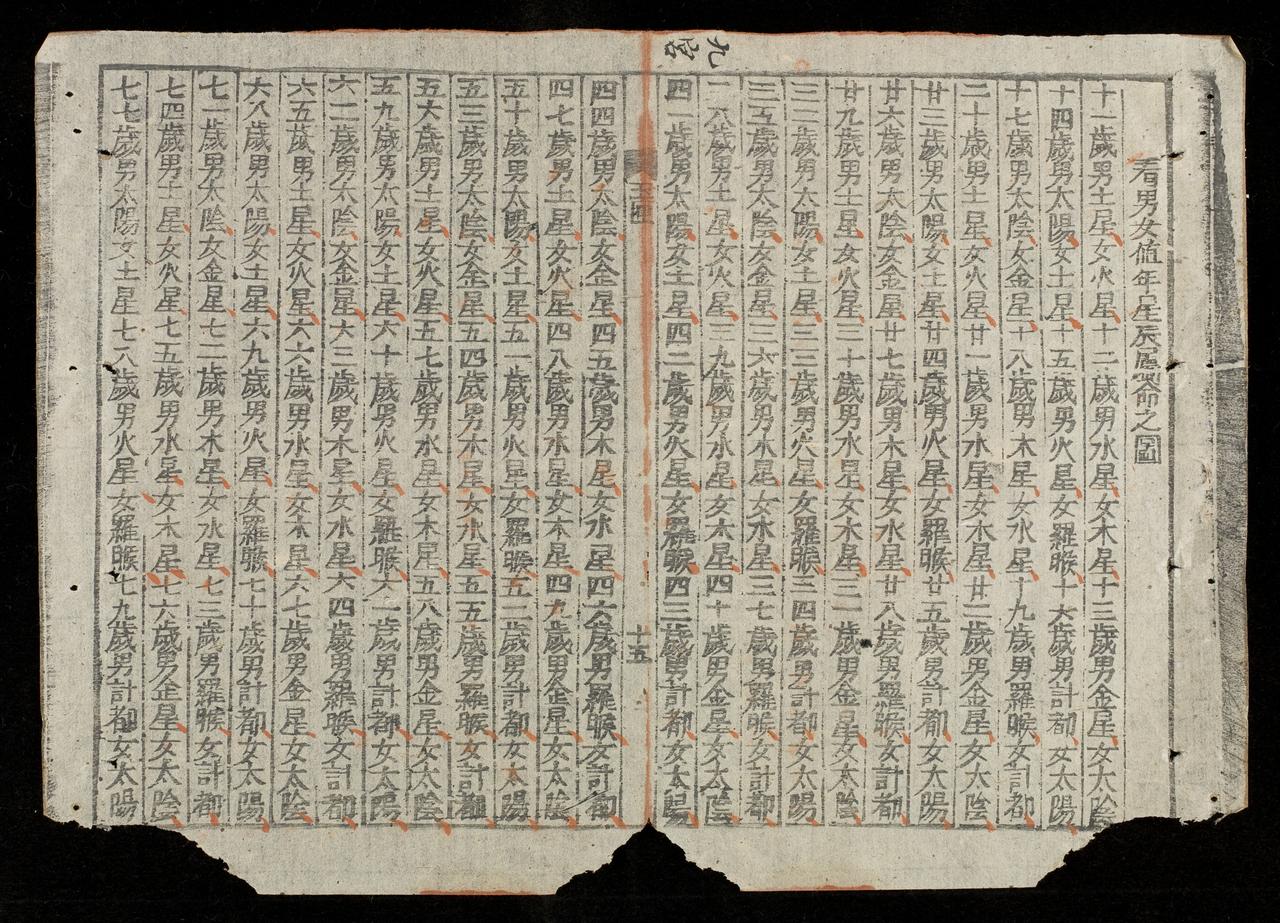 九宮
看男女値年星辰屬命之圖
十一歲男土星女火星十二歲男水星女木星十三歲男金星女太陰
十四歲男太陽女土星十五歲男火星女羅睺十六歲男計都女太陽
十七歲男太陰女金星十八歲男木星女水星十九歲男羅睺女計都
二十歲男土星女火星廿一歲男水星女木星廿二歲男金星女太陰
廿三歲男太陽女土星廿四歲男火星女羅睺廿五歲男計都女太陽
廿六歲男太陰女金星廿七歲男木星女水星廿八歲男羅睺女計都
廿九歲男土星女火星三十歲男水星女木星三一歲男金星女太陰
三二歲男太陽女土星三三歲男火星女羅睺三四歲男計都女太陽
三五歲男太陰女金星三六歲男木星女水星三七歲男羅睺女計都
三八歲男土星女火星三九歲男水星女木星四十歲男金星女太陰
四一歲男太陽女土星四二歲男火星女羅睺四三歲男計都女太陽
十五
四四歲男太陰女金星四五歲男木星女水星四六歲男羅睺女計都
四七歲男土星女火星四八歲男水星女木星四九歲男金星女太陰
五十歲男太陽女土星五一歲男火星女羅睺五二歲男計都女太陽
五三歲男太陰女金星五四歲男木星女水星五五歲男羅睺女計都
五六歲男土星女火星五七歲男水星女木星五八歲男金星女太陰
五九歲男太陽女土星六十歲男火星女羅睺六一歲男計都女太陽
六二歲男太陰女金星六三歲男木星女水星六四歲男羅睺女計都
六五歲男土星女火星六六歲男水星女木星六七歲男金星女太陰
六八歲男太陽女土星六九歲男火星女羅睺七十歲男計都女太陽
七一歲男太陰女金星七二歲男木星女水星七三歲男羅睺女計都
七四歲男土星女火星七五歲男水星女木星七六歲男金星女太陰
七七歲男太陽女土星七八歲男火星女羅睺七九歲男計都女太陽